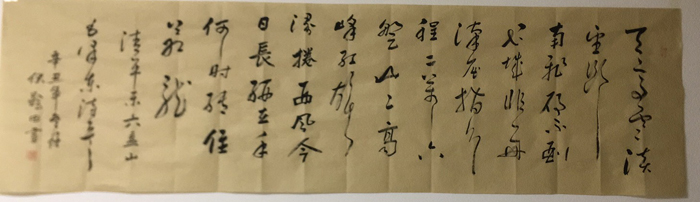 天高云淡
望断
南飞雁不到
长城非好
汉屈指行
程二万六
盘山上高
峰红旗
漫捲西风今
日长缨在手
何时缚住
苍龙
清平乐六盘山
毛泽东诗
辛丑年
书